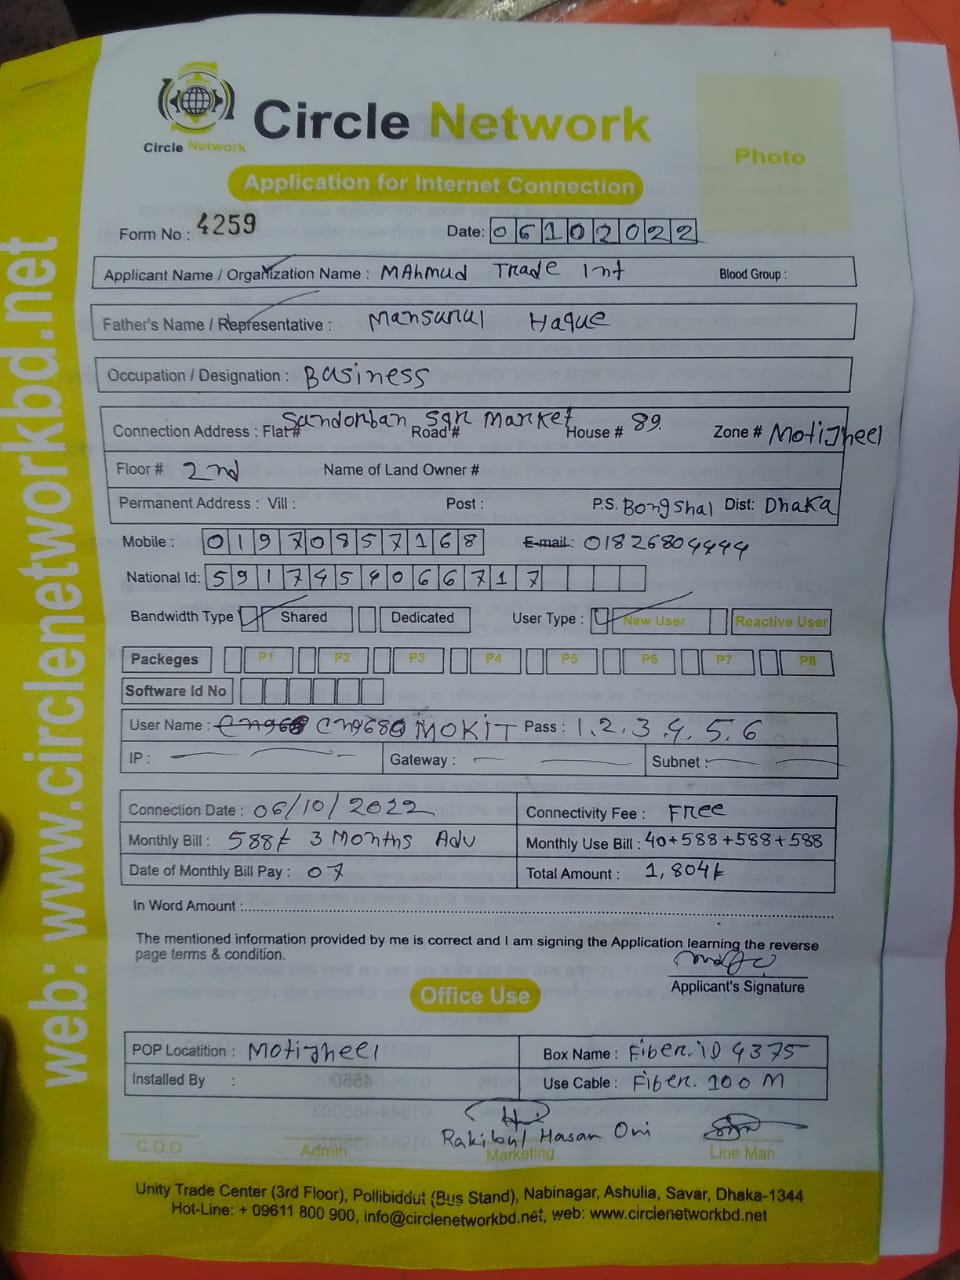 Circle Network
Circle Network
Photo
Application for Internet Connection
Form No : 4259
Date: 06102022
Applicant Name / Organization Name : MAhmud Trade Int Blood Group :
Father's Name / Representative : Mansurul Haque
Occupation / Designation : Business
Connection Address : Flat # Sandorban Sqr Market Road # House # 89. Zone # Motijheel
Floor # 2nd Name of Land Owner #
Permanent Address : Vill : Post : P.S. Bongshal Dist: Dhaka
Mobile : 01970857168 E-mail: 01826804444
National Id: 59174540667 17
Bandwidth Type Shared Dedicated User Type : New User Reactive User
Packeges P1 P2 P3 P4 P5 P6 P7 P8
Software Id No
User Name : MOKIT Pass : 1.2.3.4.5.6
IP : Gateway : Subnet :
Connection Date : 06/10/2022 Connectivity Fee : Free
Monthly Bill : 588tk 3 Months Adv Monthly Use Bill : 40+588+588+588
Date of Monthly Bill Pay : 07 Total Amount : 1,804tk
In Word Amount :
The mentioned information provided by me is correct and I am signing the Application learning the reverse
page terms & condition.
Applicant's Signature
Office Use
POP Locatition : Motijheel Box Name : Fiber. iD 4375
Installed By : Use Cable : Fiber. 100 M
Rakibul Hasan Oni
C.O.O Admin Marketing Line Man
Unity Trade Center (3rd Floor), Pollibiddut (Bus Stand), Nabinagar, Ashulia, Savar, Dhaka-1344
Hot-Line: + 09611 800 900, info@circlenetworkbd.net, web: www.circlenetworkbd.net
web: www.circlenetworkbd.net